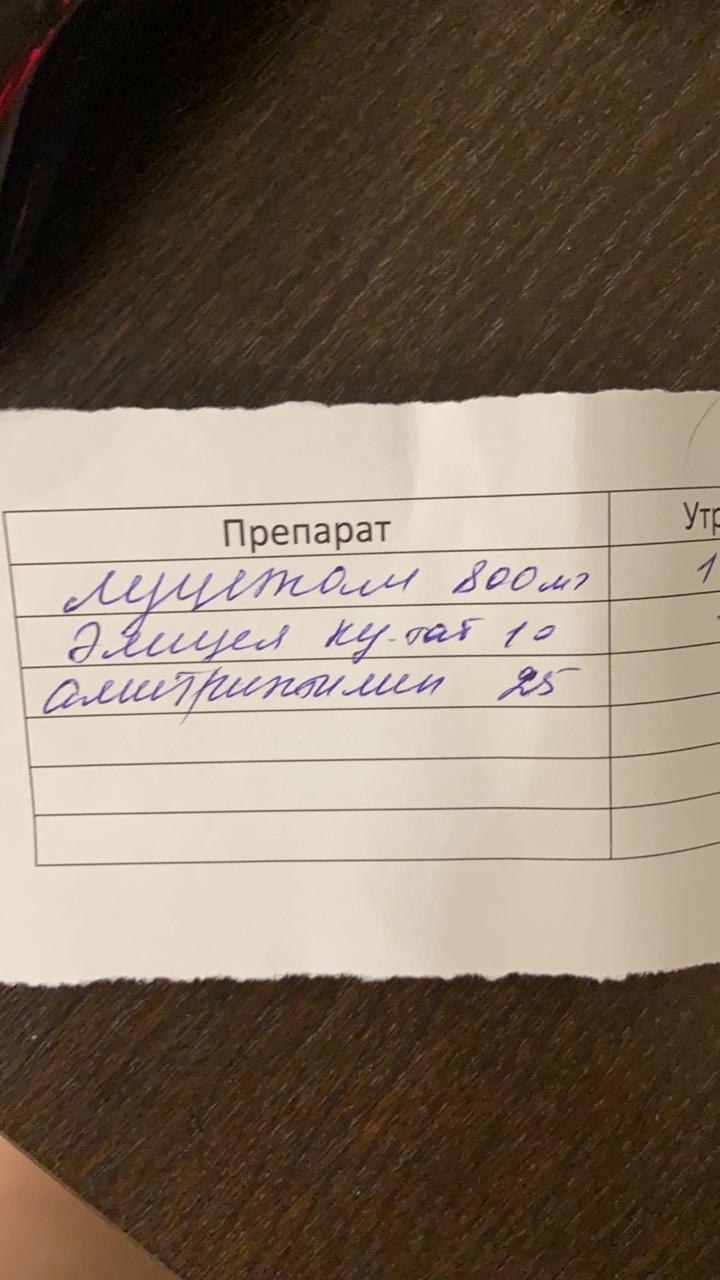 Препарат Утр
Луцетам 800 мг 1
Элицея ку-таб 10
амитриптилин 25